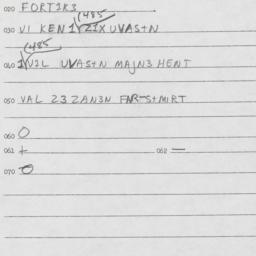 020 FORTIKS
(485
030 VI KEN 1 Y21X UVAS+N
(485
040 1 V2L UVAS+N MAJN3 HENT
050 VAL 23 2AN3N FAR-S+MIRT
060 O
061 + 062 —
070 O